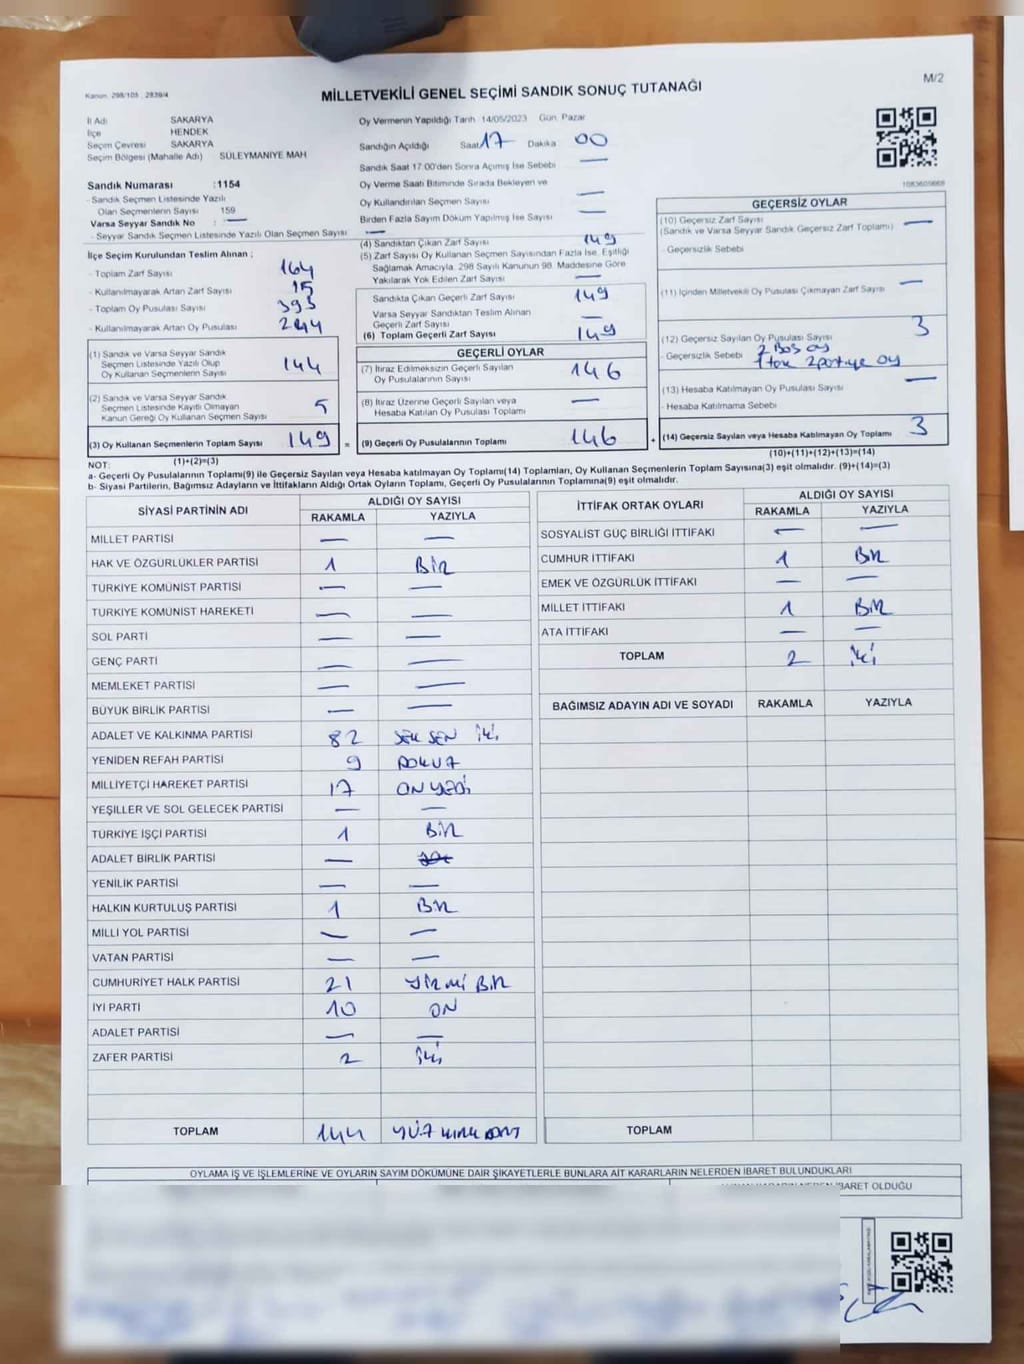 Kanun: 298/105 , 2839/4
MİLLETVEKİLİ GENEL SEÇİMİ SANDIK SONUÇ TUTANAĞI
M/2
İl Adı SAKARYA
İlçe HENDEK
Seçim Çevresi SAKARYA
Seçim Bölgesi (Mahalle Adı) SÜLEYMANİYE MAH
Sandık Numarası :1154
- Sandık Seçmen Listesinde Yazılı
Olan Seçmenlerin Sayısı 159
Varsa Seyyar Sandık No : —
- Seyyar Sandık Seçmen Listesinde Yazılı Olan Seçmen Sayısı —
İlçe Seçim Kurulundan Teslim Alınan ;
- Toplam Zarf Sayısı 164
- Kullanılmayarak Artan Zarf Sayısı 15
- Toplam Oy Pusulası 393
- Kullanılmayarak Artan Oy Pusulası 244
(1) Sandık ve Varsa Seyyar Sandık
Seçmen Listesinde Yazılı Olup
Oy Kullanan Seçmenlerin Sayısı 144
(2) Sandık ve Varsa Seyyar Sandık
Seçmen Listesinde Kayıtlı Olmayan
Kanun Gereği Oy Kullanan Seçmen Sayısı 5
(3) Oy Kullanan Seçmenlerin Toplam Sayısı 149 =
(1)+(2)=(3)
Oy Vermenin Yapıldığı Tarih 14/05/2023 Gün Pazar
Sandığın Açıldığı Saat 17 Dakika 00
Sandık Saat 17:00'den Sonra Açılmış İse Sebebi —
Oy Verme Saati Bitiminde Sırada Bekleyen ve
Oy Kullandırılan Seçmen Sayısı —
Birden Fazla Sayım Döküm Yapılmış İse Sayısı —
(4) Sandıktan Çıkan Zarf Sayısı 149
(5) Zarf Sayısı Oy Kullanan Seçmen Sayısından Fazla İse, Eşitliği
Sağlamak Amacıyla, 298 Sayılı Kanunun 98. Maddesine Göre
Yakılarak Yok Edilen Zarf Sayısı —
Sandıkta Çıkan Geçerli Zarf Sayısı 149
Varsa Seyyar Sandıktan Teslim Alınan
Geçerli Zarf Sayısı —
(6) Toplam Geçerli Zarf Sayısı 149
GEÇERLİ OYLAR
(7) İtiraz Edilmeksizin Geçerli Sayılan
Oy Pusulalarının Sayısı 146
(8) İtiraz Üzerine Geçerli Sayılan veya
Hesaba Katılan Oy Pusulası Toplamı —
(9) Geçerli Oy Pusulalarının Toplamı 146 +
1083605668
GEÇERSİZ OYLAR
(10) Geçersiz Zarf Sayısı —
(Sandık ve Varsa Seyyar Sandık Geçersiz Zarf Toplamı)
- Geçersizlik Sebebi
(11) İçinden Milletvekili Oy Pusulası Çıkmayan Zarf Sayısı —
(12) Geçersiz Sayılan Oy Pusulası Sayısı 3
- Geçersizlik Sebebi 2 Boş oy
1 tane 2 partiye oy
(13) Hesaba Katılmayan Oy Pusulası Sayısı —
- Hesaba Katılmama Sebebi
(14) Geçersiz Sayılan veya Hesaba Katılmayan Oy Toplamı 3
(10)+(11)+(12)+(13)=(14)
NOT:
a- Geçerli Oy Pusulalarının Toplamı(9) ile Geçersiz Sayılan veya Hesaba katılmayan Oy Toplamı(14) Toplamları, Oy Kullanan Seçmenlerin Toplam Sayısına(3) eşit olmalıdır. (9)+(14)=(3)
b- Siyasi Partilerin, Bağımsız Adayların ve İttifakların Aldığı Ortak Oyların Toplamı, Geçerli Oy Pusulalarının Toplamına(9) eşit olmalıdır.
SİYASİ PARTİNİN ADI ALDIĞI OY SAYISI
RAKAMLA YAZIYLA
MİLLET PARTİSİ — —
HAK VE ÖZGÜRLÜKLER PARTİSİ 1 BİR
TÜRKİYE KOMÜNİST PARTİSİ — —
TÜRKİYE KOMÜNİST HAREKETİ — —
SOL PARTİ — —
GENÇ PARTİ — —
MEMLEKET PARTİSİ — —
BÜYÜK BİRLİK PARTİSİ — —
ADALET VE KALKINMA PARTİSİ 82 SEKSEN İKİ
YENİDEN REFAH PARTİSİ 9 DOKUZ
MİLLİYETÇİ HAREKET PARTİSİ 17 ON YEDİ
YEŞİLLER VE SOL GELECEK PARTİSİ — —
TÜRKİYE İŞÇİ PARTİSİ 1 BİR
ADALET BİRLİK PARTİSİ —
YENİLİK PARTİSİ — —
HALKIN KURTULUŞ PARTİSİ 1 BİR
MİLLİ YOL PARTİSİ — —
VATAN PARTİSİ — —
CUMHURİYET HALK PARTİSİ 21 YİRMİ BİR
İYİ PARTİ 10 ON
ADALET PARTİSİ — —
ZAFER PARTİSİ 2 İKİ
TOPLAM 144 YÜZ KIRK DÖRT
İTTİFAK ORTAK OYLARI ALDIĞI OY SAYISI
RAKAMLA YAZIYLA
SOSYALİST GÜÇ BİRLİĞİ İTTİFAKI — —
CUMHUR İTTİFAKI 1 BİR
EMEK VE ÖZGÜRLÜK İTTİFAKI — —
MİLLET İTTİFAKI 1 BİR
ATA İTTİFAKI — —
TOPLAM 2 İKİ
BAĞIMSIZ ADAYIN ADI VE SOYADI RAKAMLA YAZIYLA
TOPLAM
OYLAMA İŞ VE İŞLEMLERİNE VE OYLARIN SAYIM DÖKÜMÜNE DAİR ŞİKAYETLERLE BUNLARA AİT KARARLARIN NELERDEN İBARET BULUNDUKLARI
İBARET OLDUĞU